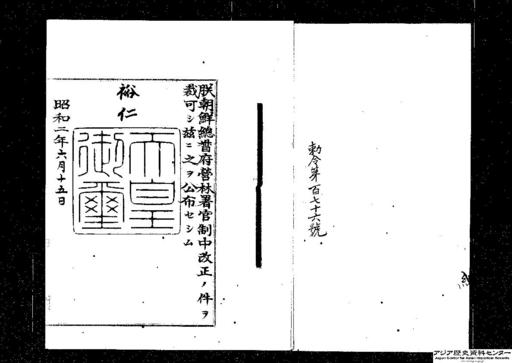 勅令第百七十六號
朕朝鮮總督府營林署官制中改正ノ件ヲ
裁可シ茲ニ之ヲ公布セシム
裕仁
天皇
御璽
昭和二年六月十五日
アジア歴史資料センター
Japan Center for Asian Historical Records